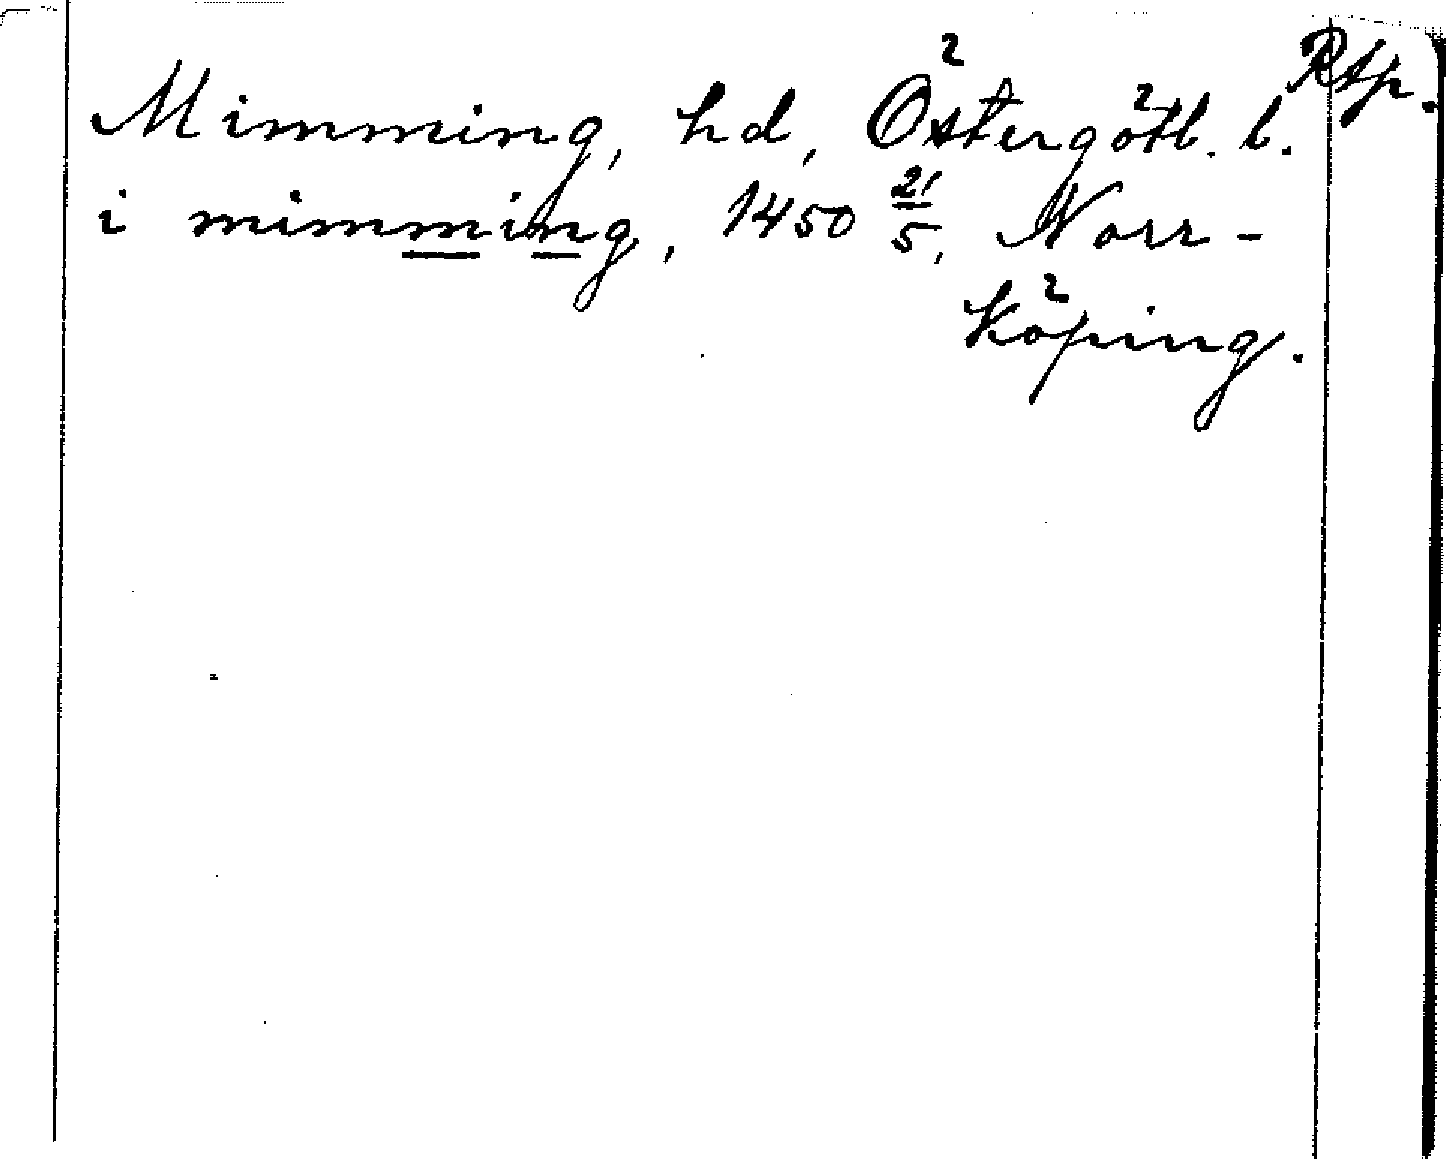 Mimming, hd, Östergötl. l. RAp.
i mimming, 1450 21/5, Norr-
köping.